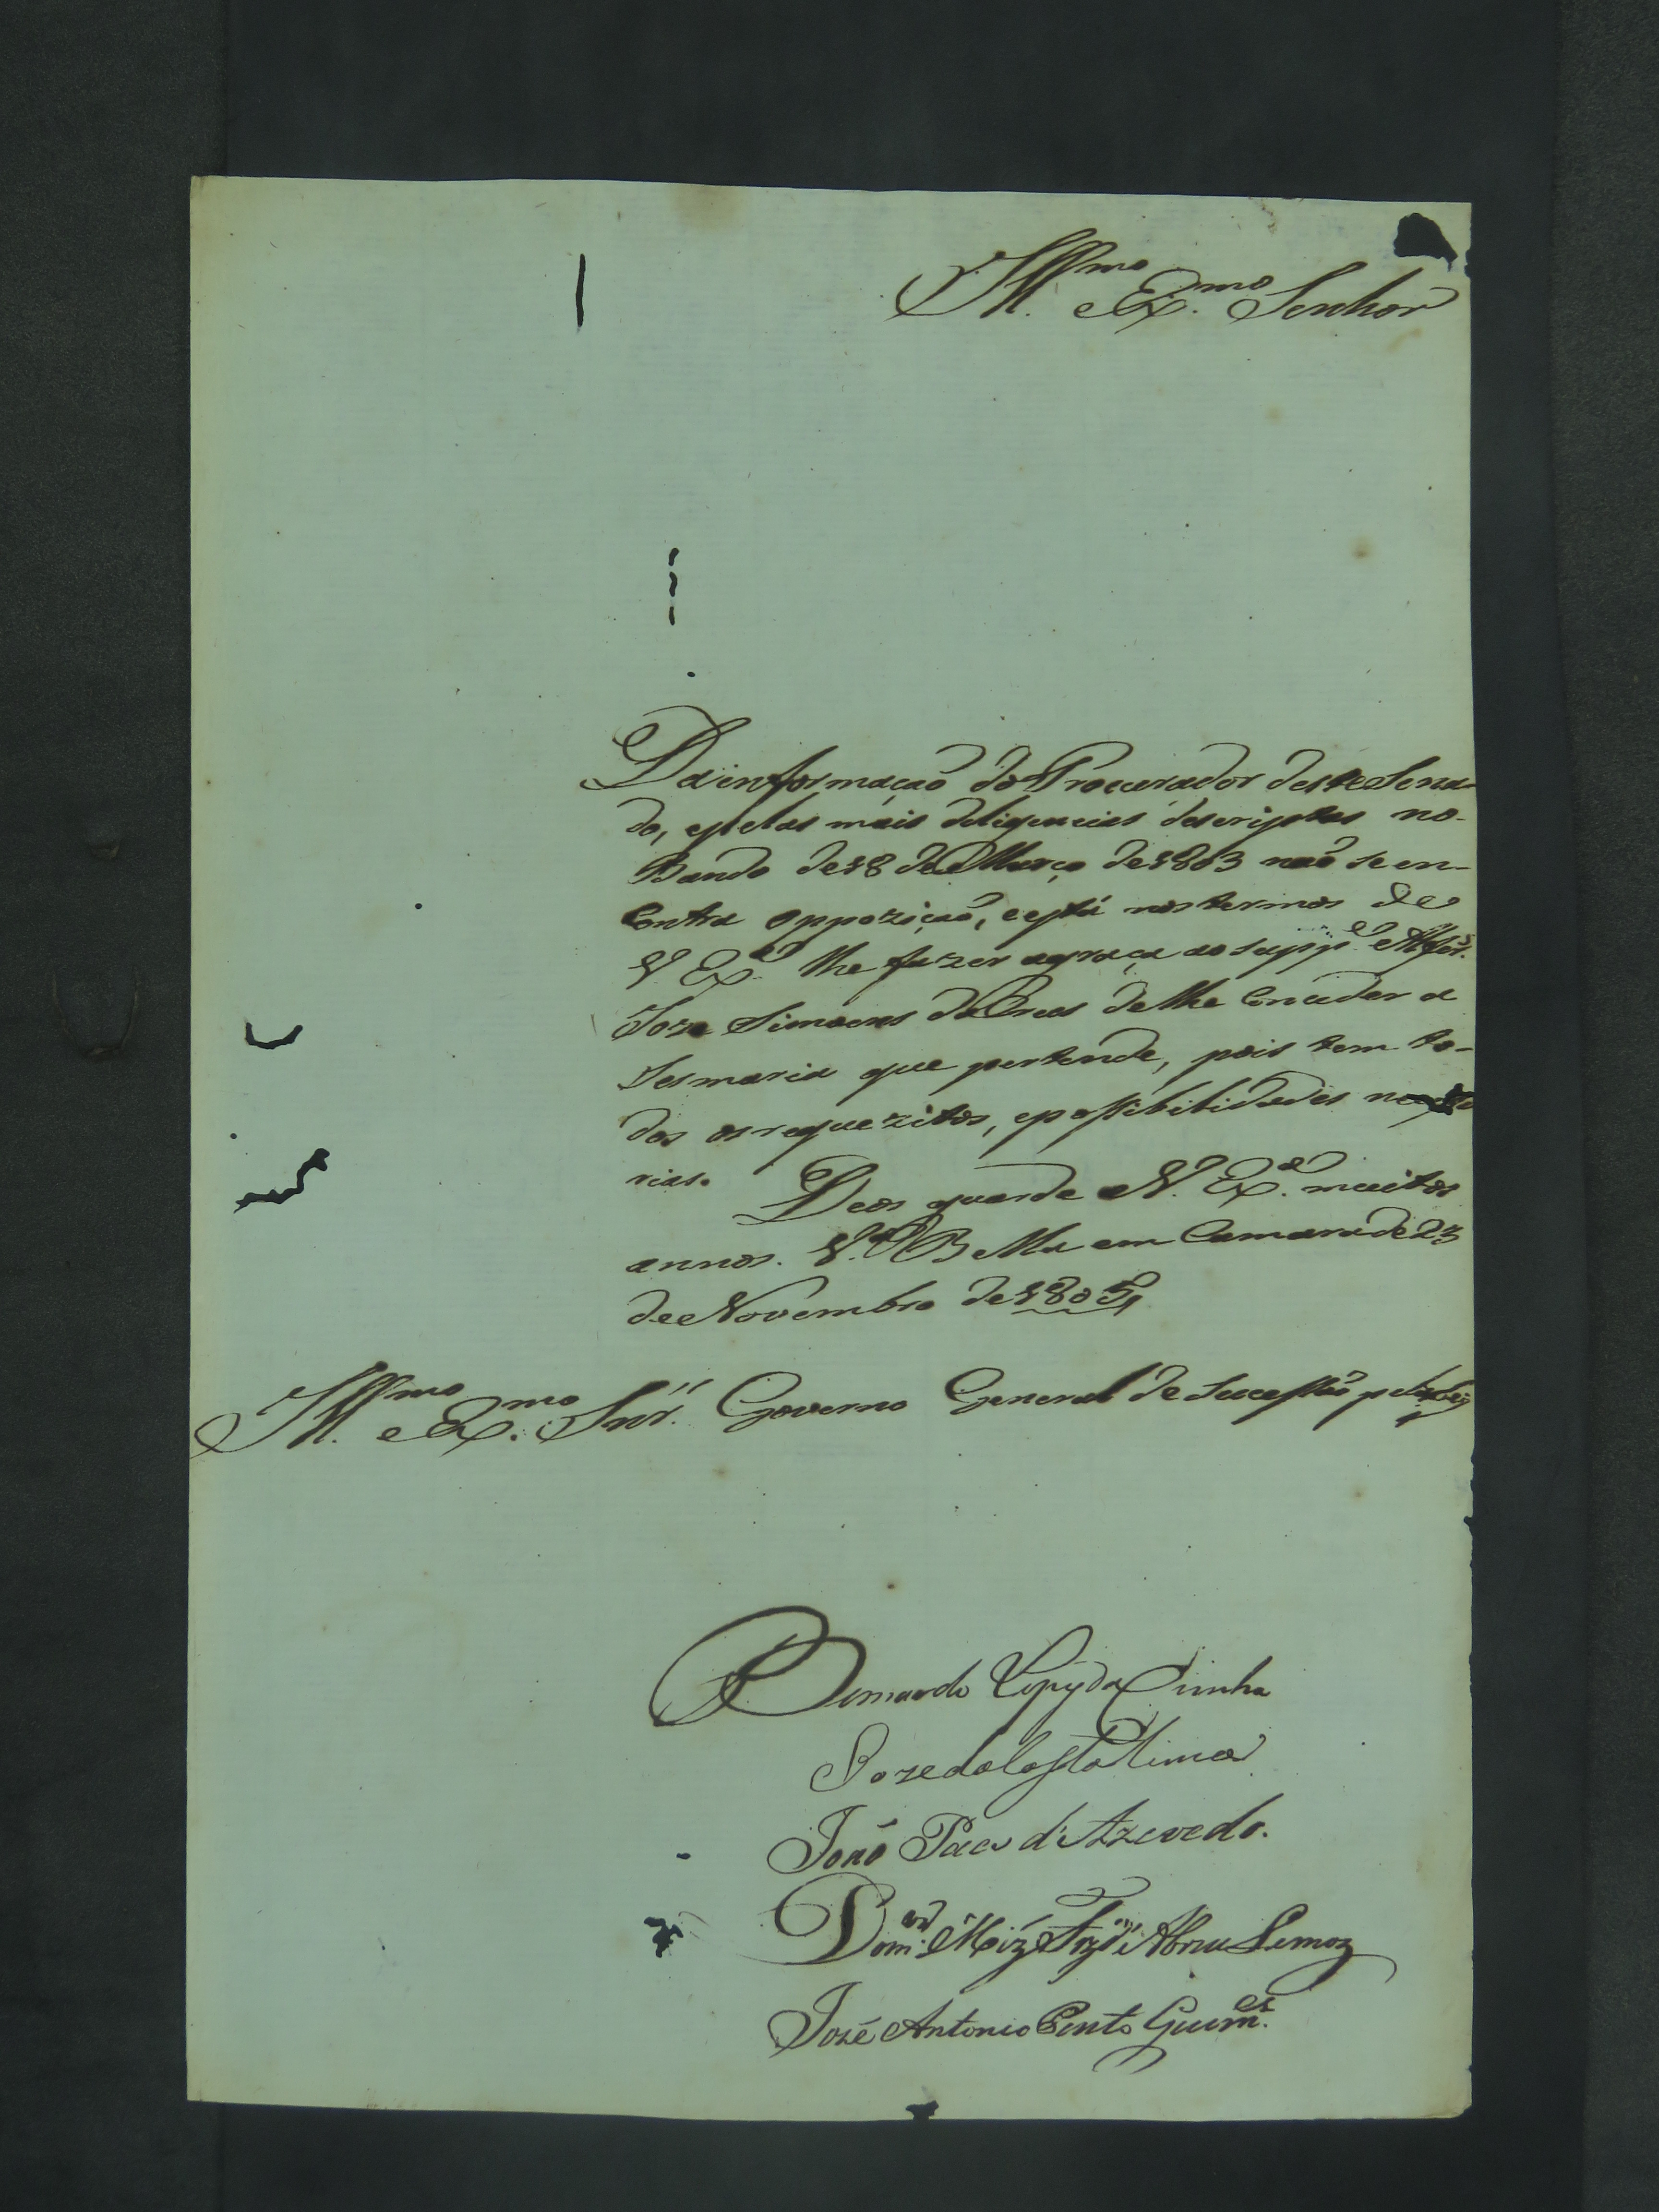 Ill.mo e Ex.mo Senhor
Da informação do Procurador deste Sena-
do, e pelas mais deligencias descriptas no-
Bando de 18 de Março de 1803 naõ se en-
contra oppoziçaõ, e está nos termos de
V Ex.a lhe fazer a graça ao supp.e Alfer.s
Joze Simoens da de lhe Conceder a
Sesmaria que pertende, pois tem to-
dos os requezitos, e possibilidades
rias. Deos guarde a V. Ex.a muitos
annos. V.a B em Camara de 23
de Novembro de 1805
Ill.mo e Ex.mo Snr. Governo General de Sucessaõ pela Ley
Bernardo da Cunha
Joze da Costa Lima
Joaõ Paes d'Azevedo.
Dom.os Miz Frz' d' Abreu Lemoz
José Antonio Pinto Guim.es